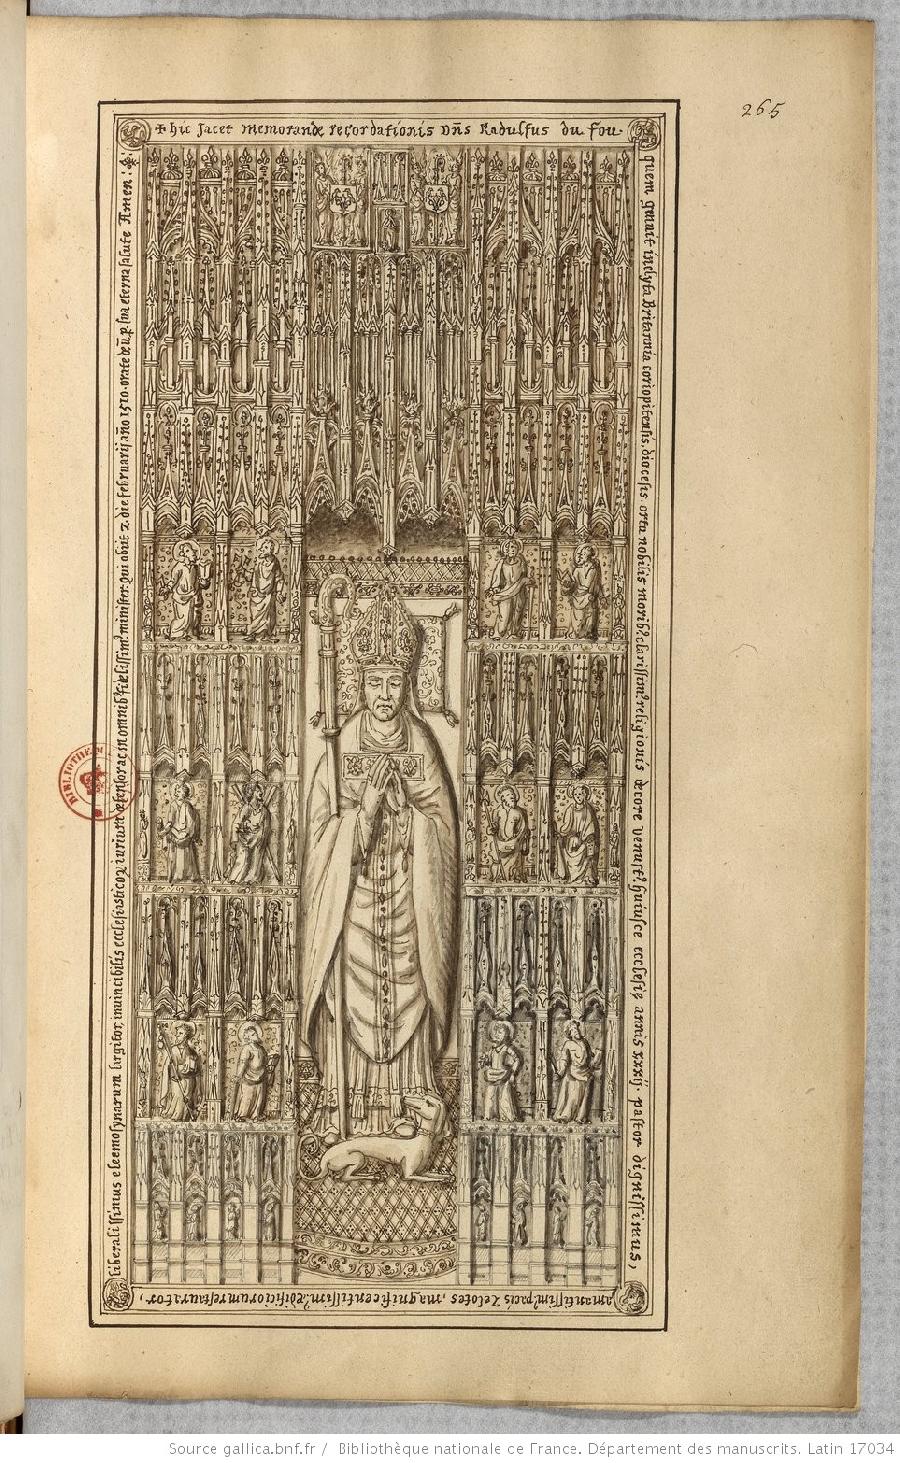 265
✠ hic Jacet memorandæ recordationis Dñs Radulfus du fou.
quem genuit inclyta Britannia coriopitensis diocesis ortu nobilis morib9 clarissim9 religionis decore venust9 huiusce ecclesię annis xxxij. pastor dignissimus,
amantissim9 pacis Zelotes, magnificentissim9 ædificiorum restaurator,
liberalissimus eleemosynarum largitor, inuincibilis ecclesiasticoꝝ iurium defensor ac in omnib9 fidelissim9 minister: qui obiit 2. die februarij año 1510. orate deū p. sua eterna salute Amen:
BIBLIOTHE
Source gallica.bnf.fr / Bibliothèque nationale de France. Département des manuscrits. Latin 17034